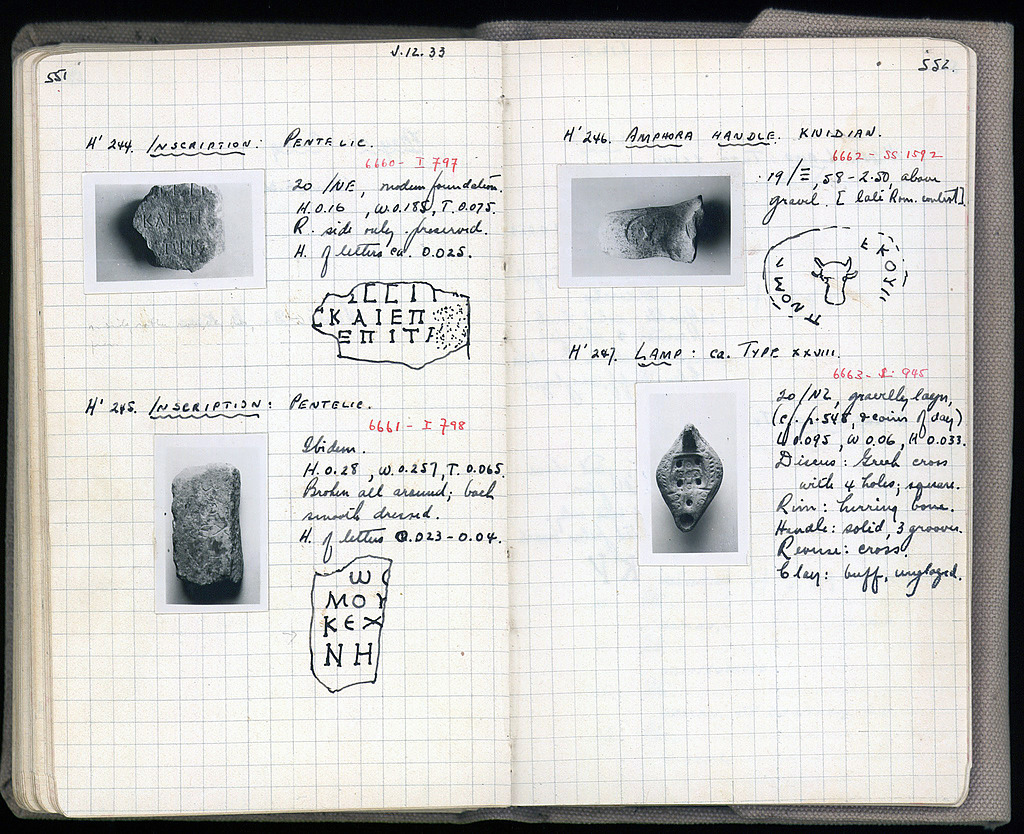 551
J.12.33
H' 244. INSCRIPTION: PENTELIC.
6660 - I 797
20/NE, modern foundation.
H. 0.16, W. 0.185, T. 0.075.
R. side only preserved.
H. of letters ca. 0.025.
ΚΑΙΕΠ
ΕΠΙΤ
H' 245. INSCRIPTION: PENTELIC.
6661 - I 798
Ibidem.
H. 0.28, W. 0.257, T. 0.065.
Broken all around; back
smooth dressed.
H. of letters 0.023 - 0.04.
Ѡ
ΜΟΥ
ΚΕΧ
ΝΗ
552.
H' 246. AMPHORA HANDLE. KNIDIAN.
6662 - SS 1592
19/Ξ, 58-2.50, above
gravel. [late Rom. context].
H' 247. LAMP: ca. TYPE XXVIII.
6663 - L 945
20/NZ, gravelly layer,
(cf. p. 548, & coins of day)
L 0.095, W 0.06, H 0.033.
Discus: Greek cross
with 4 holes; square.
Rim: herring bone.
Handle: solid, 3 grooves.
Reverse: cross.
Clay: buff, unglazed.